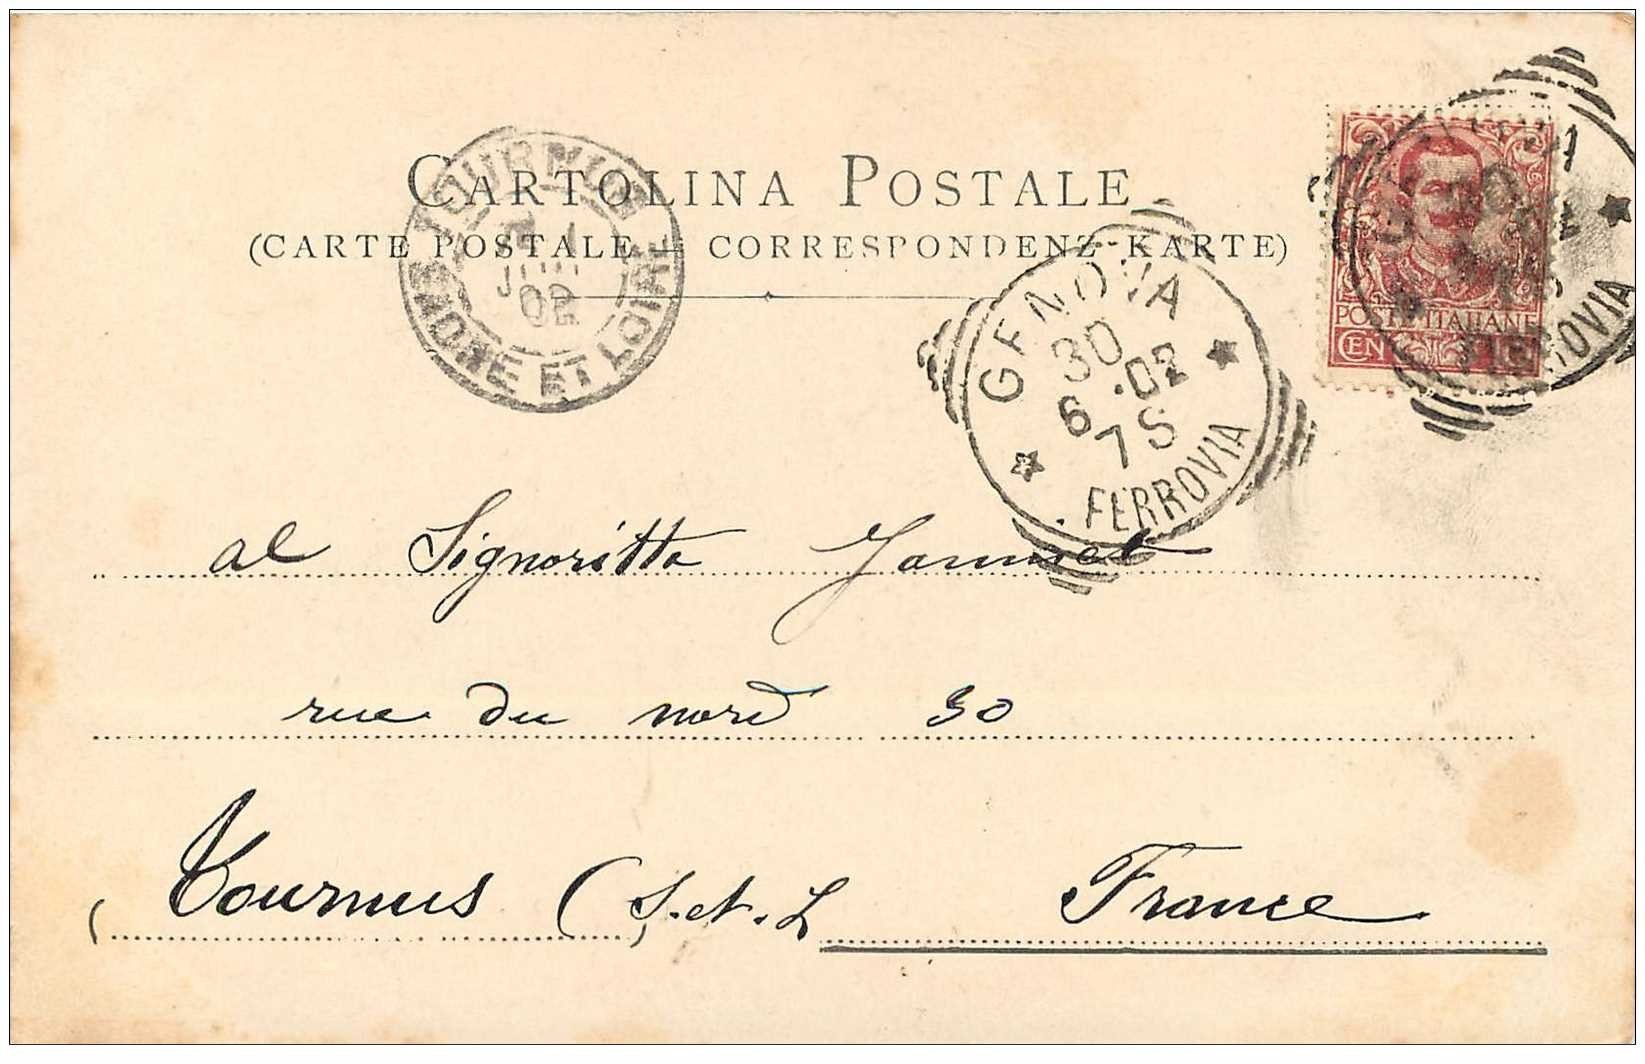 CARTOLINA POSTALE
(CARTE POSTALE — CORRESPONDENZ-KARTE)
TOURNUS
2
JUIL
02
SAONE ET LOIRE
GENOVA
30
6 .02
7 S
FERROVIA
POSTE ITALIANE
CEN
FERROVIA
al Signoritta Jannet
rue du nord 30
Tournus (S.et.L
France